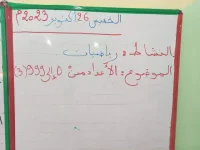 الخميس 26 أكتوبر 2023م
النشاط: رياضيات
الموضوع: الأعداد من 0 إلى 999 (3)